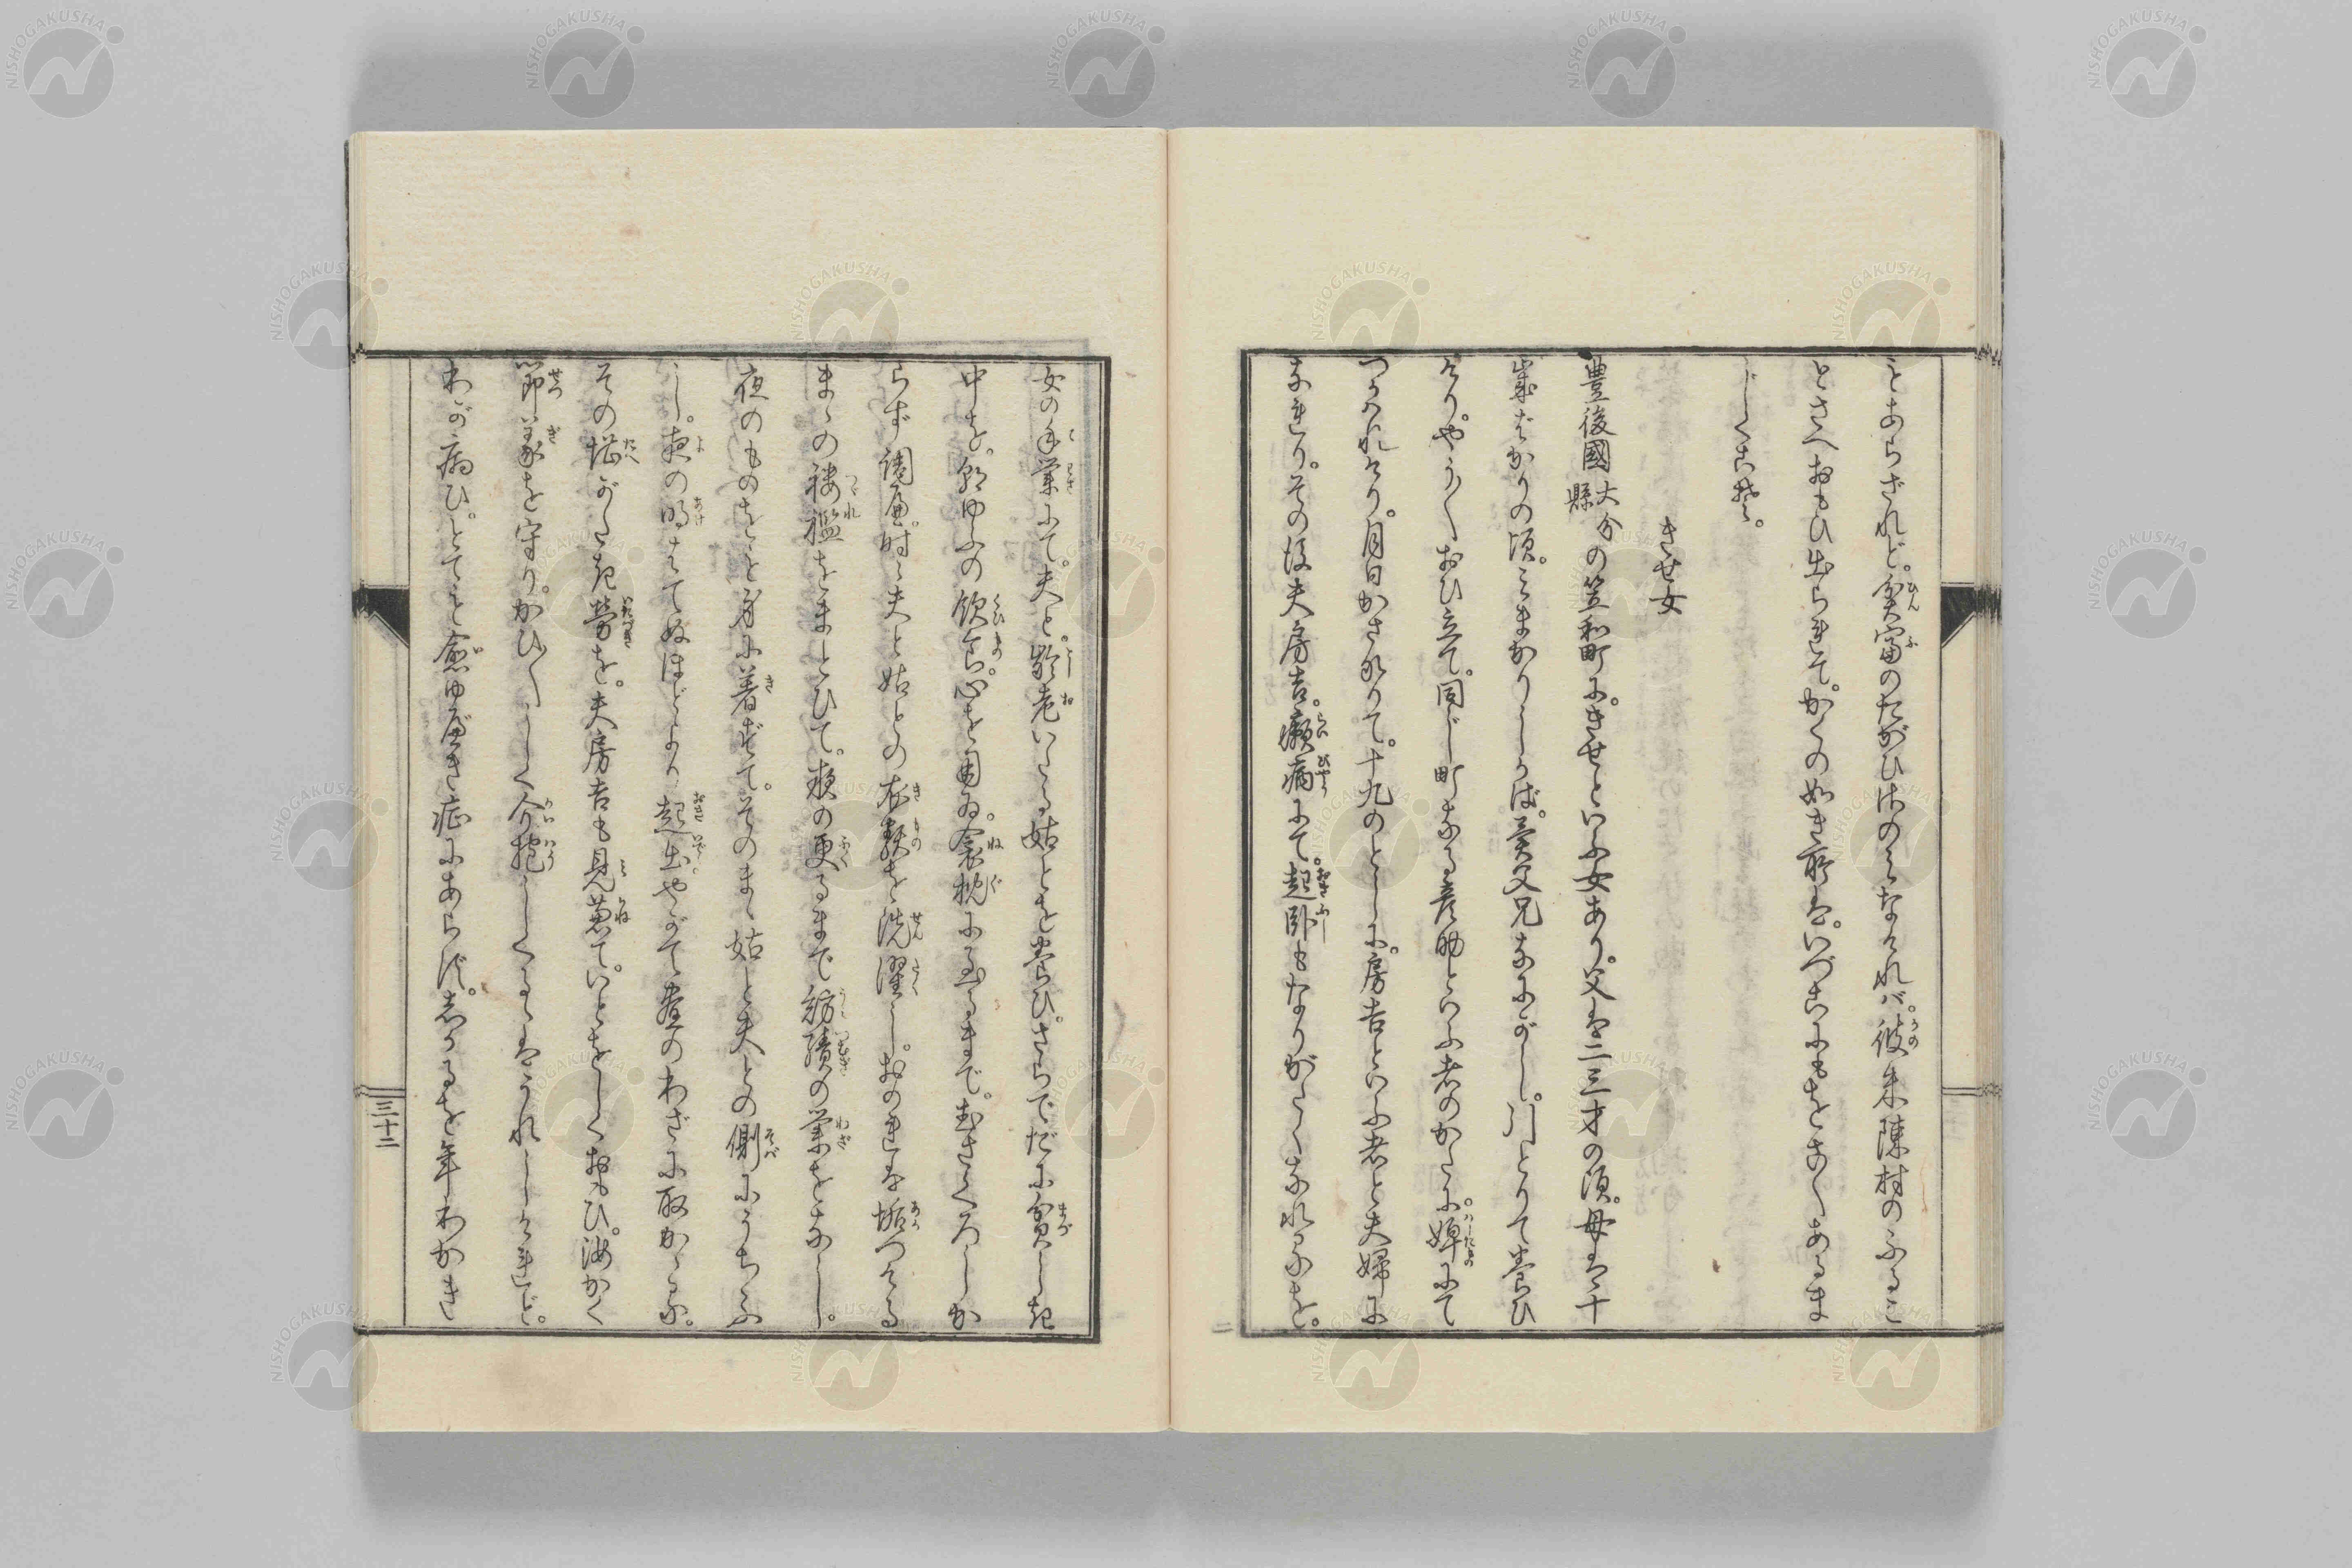 もあらざれど。貧富のたがひはのミなけれバ。彼朱陳村のふるこ
とさへおもひ出られて。かくの如き所は。いづこにもをさ〳〵あるま
じくこそ。
きせ女
豊後國大分縣の笠和町に。きせといふ女あり。父は二三才の頃。母は十
歳ばかりの頃。ミまかりしかば。養父兄なにがし。引とりて養ひ
けり。やう〳〵おひ立て。同じ町なる彦助といふ者のかたに。婢にて
つかへけり。月日かさなりて。十九のとしに。房吉といふ者と夫婦に
なれり。その後夫房吉。癩病にて。起卧もなりがたくなれるを。
女の手業にて。夫と。齢老いたる姑とを養ひ。さらでだに貧しき
中を。朝ゆふの飲食。心を用ゐ。衾枕に至るまで。むさくろしか
らず調度。時々夫と姑との衣類を洗濯し。おのれは垢つける
まゝの襤褸をまとひて。夜の更るまで紡績の業をなし。
夜のものをも身に着ずて。そのまゝ姑と夫との側にうちふ
し。夜の明はてぬほどより起出。やがて昼のわざに取かゝるに。
その堪がたき勞を。夫房吉も見兼て。いとをしくおもひ。汝かく
節義を守り。かひ〴〵しく介抱しくるゝはうれしけれど。
わが病ひ。とても愈ゆべき症にあらず。しかるを年わかき
三十二
NISHOGAKUSHA